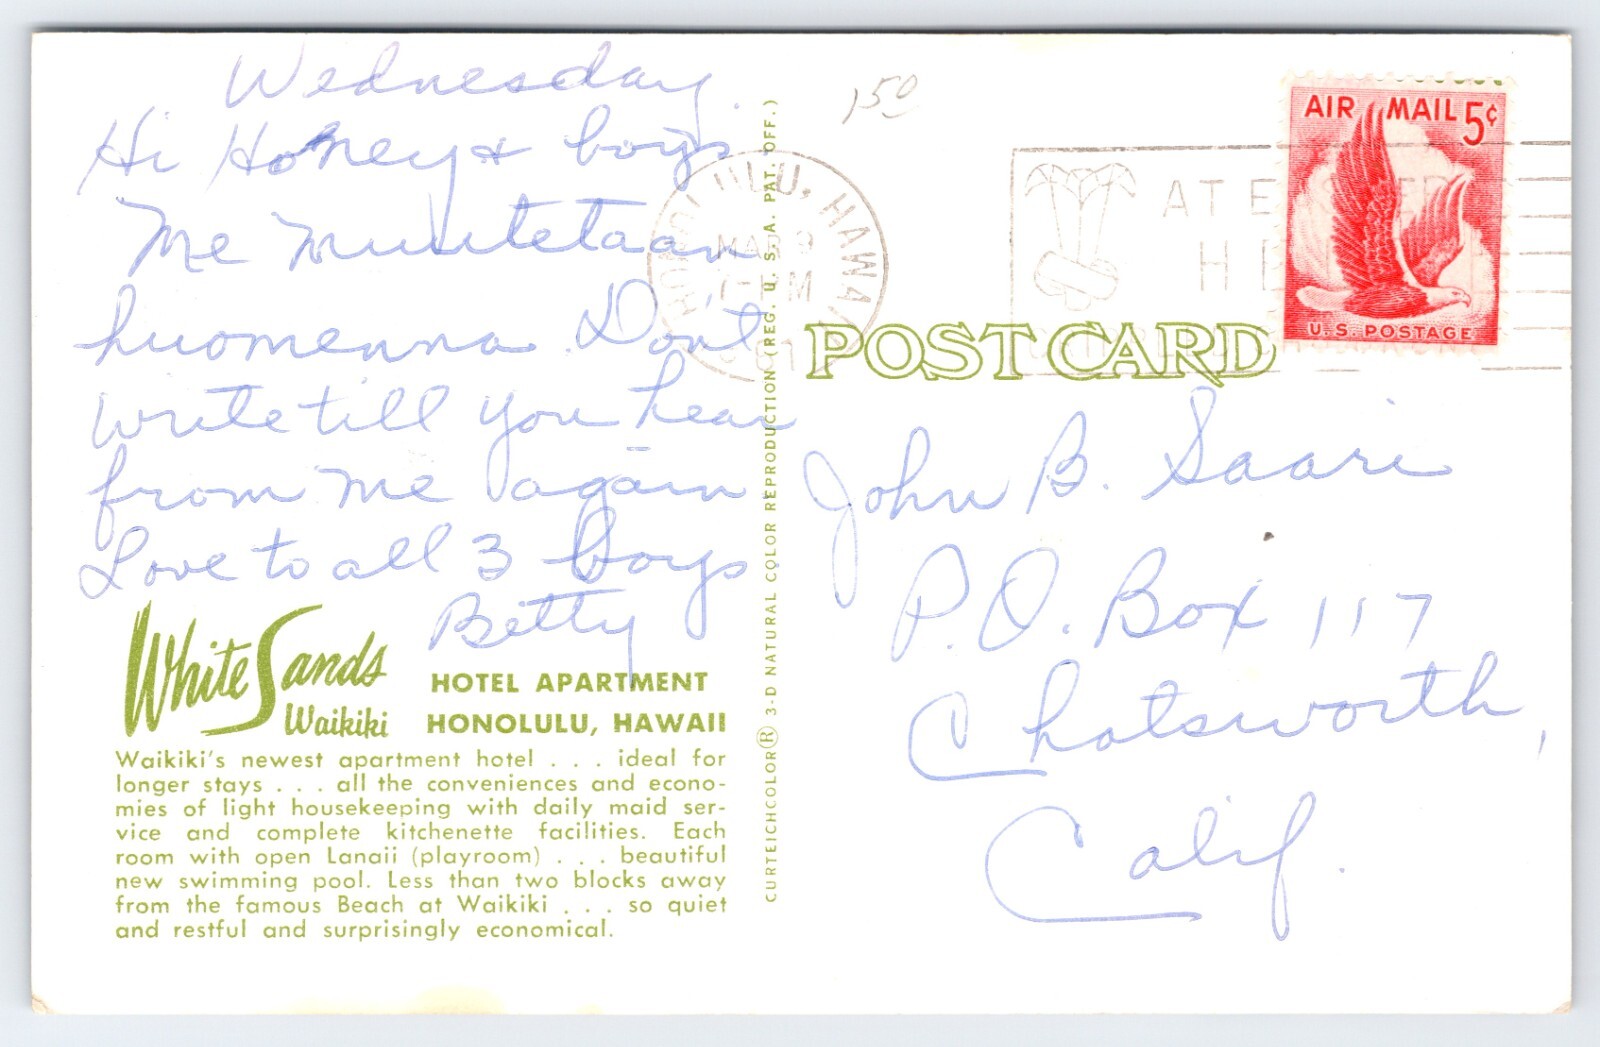 Wednesday.
Hi Honey & boys
Me muutetaan
huomenna. Dont
write till you hear
from me again
Love to all 3 boys
Betty
White Sands
Waikiki
HOTEL APARTMENT
HONOLULU, HAWAII
Waikiki's newest apartment hotel . . . ideal for
longer stays . . . all the conveniences and econo-
mies of light housekeeping with daily maid ser-
vice and complete kitchenette facilities. Each
room with open Lanaii (playroom) . . . beautiful
new swimming pool. Less than two blocks away
from the famous Beach at Waikiki . . . so quiet
and restful and surprisingly economical.
CURTEICHCOLOR® 3-D NATURAL COLOR REPRODUCTION (REG. U. S. A. PAT. OFF.)
150
HONOLULU, HAWAII
PM
AT
AIR MAIL 5¢
U.S. POSTAGE
POST CARD
John B. Saari
P.O. Box 117
Chatsworth,
Calif.